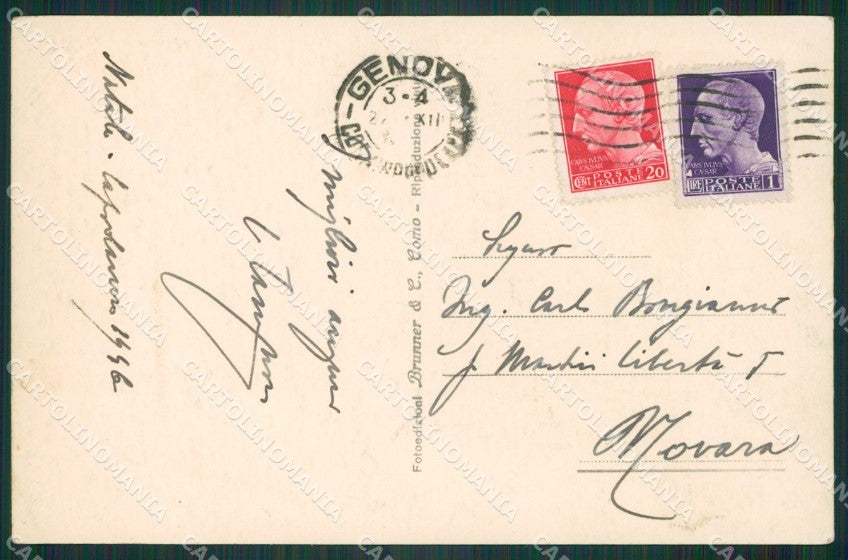 Natale - Capodanno 1946
I migliori auguri
GENOVA
3-4
XII
Fotoedizioni Brunner & C., Como - Riproduzione
CAIVS IVLIVS
CAESAR
CENT POSTE 20
ITALIANE
CAIVS IVLIVS
CAESAR
LIRE POSTE 1
ITALIANE
Ing. Carlo Bongianni
Martiri Libertà 5
Novara
CARTOLINOMANIA